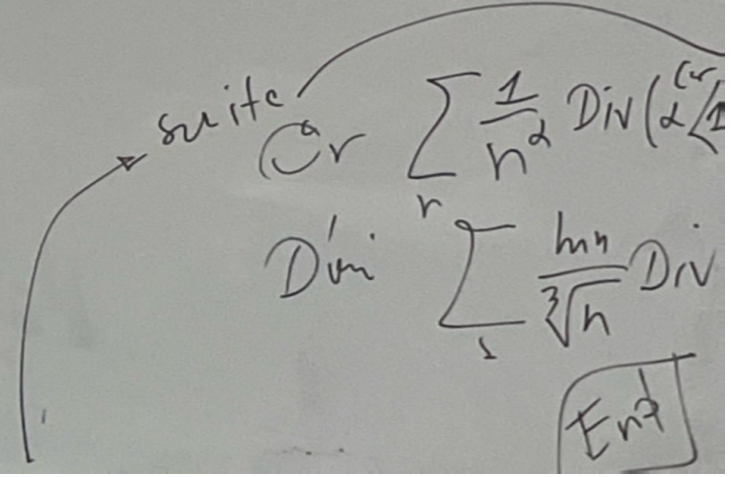 suite
Or ∑ 1/n^α Div (α<1
D'où ∑ ln n/∛n Div
End